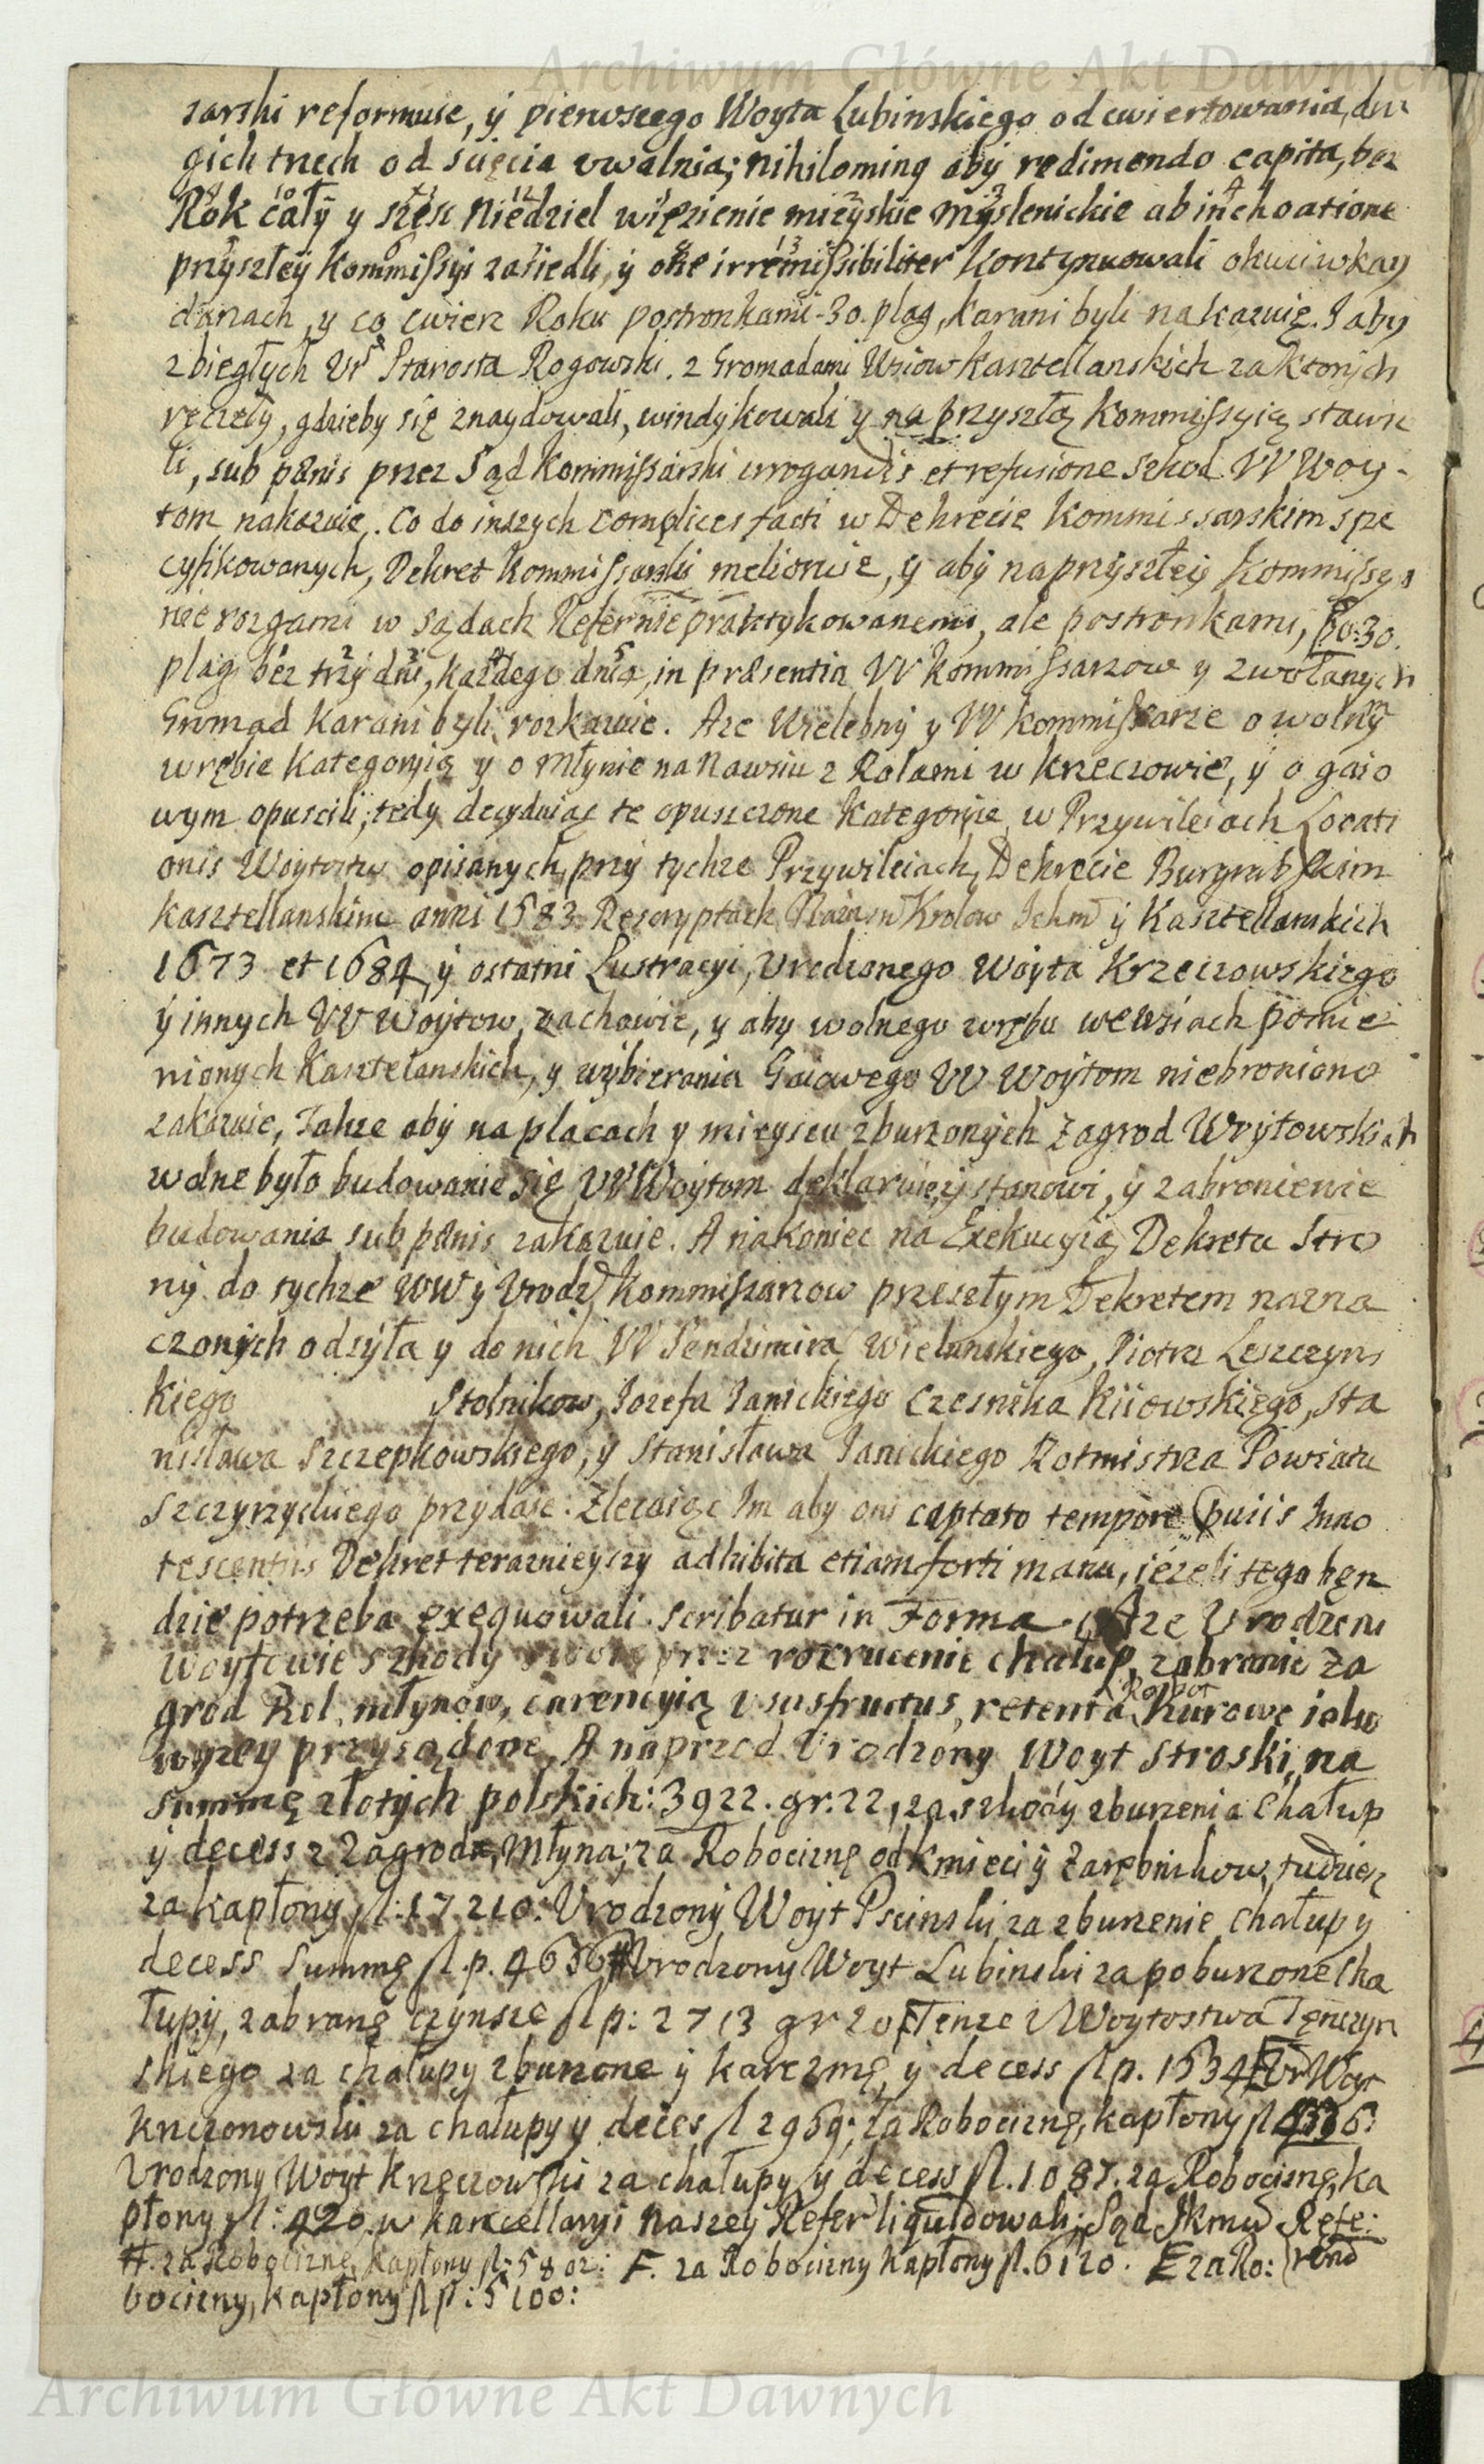 Archiwum Główne Akt Dawnych
sarski reformuie, ÿ pierwszego Woyta Lubinskiego od cwiertowania, dru
gich trzech od scięcia uwalnia; nihilominq abÿ redimendo capita, bez
Rok całÿ y szesc Niedziel więzienie mieyskie Myslenickie ab inchoatione
przyszłeÿ Kommissyi zasiedli, ÿ one irremissibiliter Kontynuowali okuci w kay
danach, y co cwierc Roku postronkami 30. plag, karani byli nakazuię. I aby
zbiegłych Ur Starosta Rogowski z Gromadami Wsiow Kasztellanskich za ktorych
ręczeły, gdzieby się znaydowali, windykowali y na przyszłą Kommissyią stawi
li, sub pænis przez Sąd Kommissarski irrogandis et refusione szkod W Woy-
tom nakazuie. Co do inszych complices facti w Dekrecie Kommissarskim spe
cyfikowanych, Dekret Kommissarski melioruie, ÿ abÿ na przyszłeÿ Kommissyi
nie rozgami w Sądach Refer nie praktykowanemi, ale postronkami, po: 30.
plag bez trzÿ dni, każdego dnia, in præsentia W Kommissarzow y zwołanych
Gromad karani byli rozkazuie. Aze Wielebny y W Kommissarze o wolnym
wrębie Kategoryią y o Młynie na Nawsiu z Rolami w Krzeczowie, ÿ o gaio
wym opuscili; tedy decyduiąc te opuszczone Kategorÿe w Przywileiach Locati
onis Woytostw opisanych, przÿ tychze Przywileiach, Dekrecie Burgrabskim
Kasztellanskim anni 1583. Rescryptach Naias Krolow Ichm ÿ Kasztellanskich
1673 et 1684, ÿ ostatni Lustracyi, Urodzonego Woyta Krzeczowskiego
ÿ innych W Woÿtow, zachowie, y aby wolnego wrębu we wsiach pomie
nionych Kasztelanskich, y wÿbierania Gaiowego W Woÿtom niebroniono
zakazuie, Takze abÿ na placach y mieyscu zburzonÿch Zagrod Wóytowskich
wolne było budowanie się W Woÿtom deklaruie, ÿ stanowi, ÿ zabronienie
budowania sub pænis zakazuie. A nakoniec na Exekucyią Dekretu Stro
nÿ do tychze WW ÿ Urodz Kommissarzow przeszłym Dekretem nazna
czonÿch odsyła y do nich W Sendzimira Wielunskiego, Piotra Leszczyns
kiego Stolnikow, Jozefa Janickiego Czesnika Kiiowskiego, Sta
nisława Szczepkowskiego, y Stanisława Janickiego Rotmistrza Powiatu
Szczyrzyckiego przydaie. Zlecaiąc Im aby oni captato tempore suis Inno
tescentiis Dekret teraznieyszy adhibita etiam forti manu, iezeli tego będ
dzie potrzeba exequowali. Scribatur in Forma. Aze Urodzeni
Woytowie szkody swoie przez rozrucenie chałup, zabranie Za
grod Rol, młynow, carencyią usus fructus, retenta Robot Kurowe iako
wyzey przysądzone. A naprzod Urodzony Woyt Stroski, na
Summę złotÿch polskich: 3922. gr: 22, za szkody zburzenia Chałup
ÿ decess z Zagrod, Młyna; za Robociznę od Kmieci ÿ Zarębnikow, tudziesz
za kapłony fl: 17210: Urodzonÿ Woyt Pcinski za zburzenie chałup y
decess Summę fl. p. 4656 # Urodzony Woyt Lubinski za poburzone Cha
łupÿ, zabranę czynsze fl p: 2713 gr 20 F Tenze z Woytostwa Tęnczyn
skiego za chałupy zburzone ÿ karczmę, ÿ decess fl p. 1534 E Ur Woyt
Krzczonowski za chałupy y deces fl 2969; za Robociznę, kapłony fl 4536:
Urodzony Woyt Krzęczowski za chałupy y decess fl. 1087. za Robociznę, ka
płony fl: 420. w kancellaryi Naszey Refer liquidowali; Sąd JKmci Refe:
#. za Robociznę, kapłony fl: 5802: F. za Robocizny kapłony fl. 6120. E za Ro: rend
bocizny, kapłony fl p: 5100:
Archiwum Główne Akt Dawnych